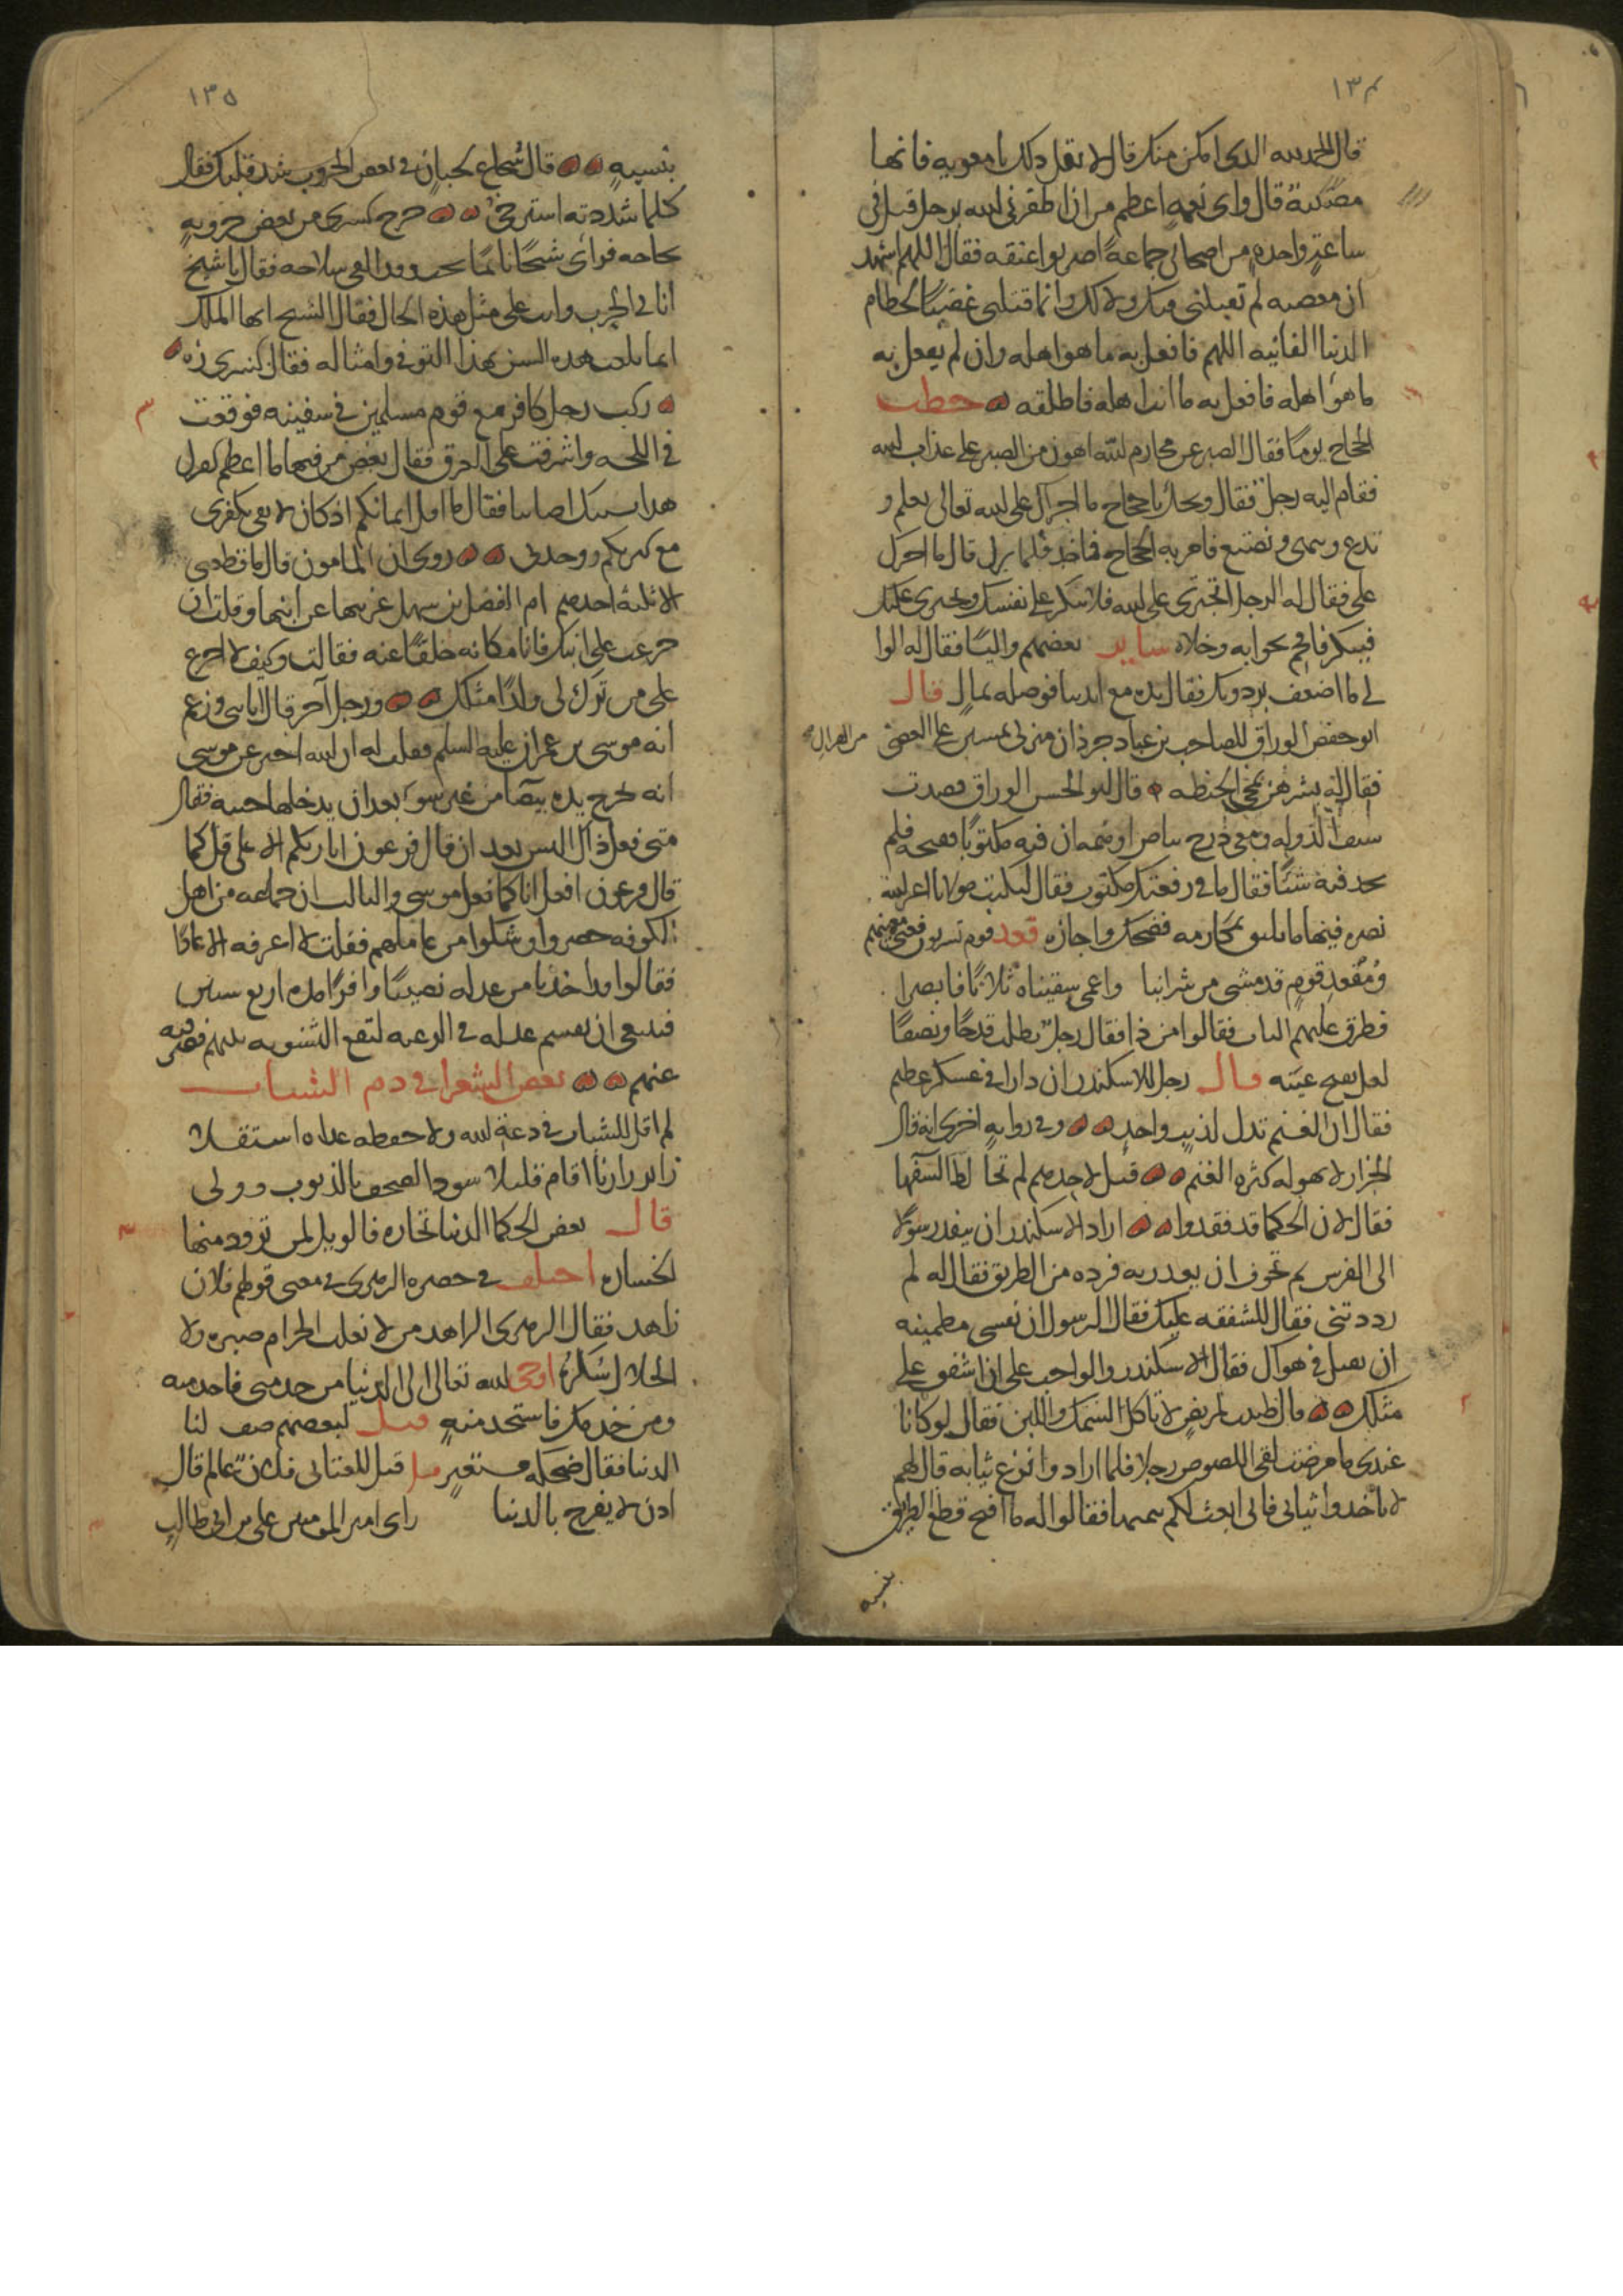 ١٣٤
قال الحمد لله الذى امكن منك قال لا تقل ذلك يا معويه فانها
مصيبة قال واى نعمه اعظم من ان اظفرنى الله برجل قتل فى
ساعة واحده من اصحابى جماعة اضربوا عنقه فقال اللهم اشهد
ان معويه لم يقتلنى فيك ولا لك وانما قتلنى غضبا لحطام
الدنيا الفانيه اللهم فافعل به ما هو اهله وان لم يفعل به
ما هو اهله فافعل به ما انت اهله فاطلقه خطب
الحجاج يوما فقال الصبر عن محارم الله اهون من الصبر على عذاب الله
فقام اليه رجل فقال ويحك يا حجاج ما اجراك على الله تعالى تعلم و
تدع وتنهى وتصنع فامر به الحجاج فاخذ فلما نزل قال ما اجراك
على فقال له الرجل اتجترى على الله فلا تنكر على نفسك ويجترى عليك
فتنكر فافحم بجوابه وخلاه ساير بعضهم واليا فقال له الوا
لى ما اضعف برذونك فقال يده مع ايدينا فوصله بمال قال
ابو حفص الوراق للصاحب بن عباد جرذان منزلى يمشين على العصى من الهزال
فقال له بشرهن بمجى الحنطه قال ابو الحسن الوراق قصدت
سيف الدوله ومعى درج بياض اوهمه ان فيه مكتوبا ففتحه فلم
يجد فيه شيئا فقال ما فى رقعتك مكتوب فقال ليكتب مولانا اعزه الله
نصره فيها ما يليق بمكارمه فضحك واجازه قعد قوم يشربون فغنى مغنيهم
ومقعد قوم قد مشى من شرابنا واعمى سقيناه ثلاثا فابصرا
فطرق عليهم الباب فقالوا من ذا فقال رجل يطلب قدحا ونصفا
لعل يفتح عينه قال رجل للاسكندر ان دارا فى عسكر عظيم
فقال ان الغنم تذل لذيب واحد وفى روايه اخرى انه قال
الجزار لا يهوله كثره الغنم قيل لاحدهم لم تخالط السفها
فقال لان الحكما قد فقدوا اراد الاسكندر ان ينفذ رسولا
الى الفرس ثم تخوف ان يغدر به فرده من الطريق فقال له لم
رددتنى فقال للشفقه عليك فقال الرسول ان نفسى مطمينه
ان تقتل فى هواك فقال الاسكندر والواجب على ان اشفق على
مثلك قال طبيب لمريض لا تاكل السمك واللبن فقال لو كانا
عندى ما مرضت لقى اللصوص رجلا فلما ارادوا نزع ثيابه قال لهم
لا تاخذوا ثيابى فانى ابعث لكم بثمنها فقالوا له ما اقبح قطع الطريق
بنسيه
١٣٥
بنسيه قال شجاع لجبان فى بعض الحروب شد قلبك فقال
كلما شددته استرخى خرج كسرى من بعض حروبه
لحاجه فراى شيخا نايما تحت وقد القى سلاحه فقال يا شيخ
انا فى الحرب وانت على مثل هذه الحال فقال الشيخ ايها الملك
انما بلغت هذه السن بهذا التوقى وامثاله فقال كسرى زه
ركب رجل كافر مع قوم مسلمين فى سفينه فوقعت
فى اللجه واشرفت على الغرق فقال بعض من فيها ما اعظم كفرك
هذا بسببك اصابنا فقال ما اقل ايمانكم اذ كان لا يفى بكفرى
مع كثرتكم ووحدتى روى ان المامون قال ما قطعنى
الا ثلثه احدهم ام الفضل بن سهل عزيتها عن ابنها وقلت ان
جزعت على ابنك فانا مكانه خلفا عنه فقالت وكيف لا اجزع
على من ترك لى ولدا مثلك ورجل آخر قال انا نبى وزعم
انه موسى بن عمران عليه السلم فقلت له ان الله اخبر عن موسى
انه يخرج يده بيضا من غير سو بعد ان يدخلها جيبه فقال
متى فعل ذاك اليس بعد ان قال فرعون انا ربكم الاعلى قل كما
قال فرعون افعل انا كما فعل موسى والثالث ان جماعه من اهل
الكوفه حضروا وشكوا من عاملهم فقلت لا اعرفه الا عادلا
فقالوا قد اخذنا من عدله نصيبا وافرا مده اربع سنين
فينبغى ان يقسم عدله فى الرعيه لتقع التسويه بينهم فصرفته
عنهم بعض الشعرا فى ذم الشباب
لم اقل للشباب فى دعة الله ولا حفظه غداه استقلا
زاير زارنا اقام قليلا سود الصحف بالذنوب وولى
قال بعض الحكما الدنيا تجاره فالويل لمن تزود منها
الخساره اختلف فى حضره الزهرى فى معنى قولهم فلان
زاهد فقال الزهرى الزاهد من لا يغلب الحرام صبره ولا
الحلال شكره اوحى الله تعالى الى الدنيا من خدمنى فاخدميه
ومن خدمك فاستخدميه قيل لبعضهم صف لنا
الدنيا فقال ضحكه مستعبر قيل للعتابى فلان عالم قال
اذن لا يفرح بالدنيا راى امير المومنين على بن ابى طالب